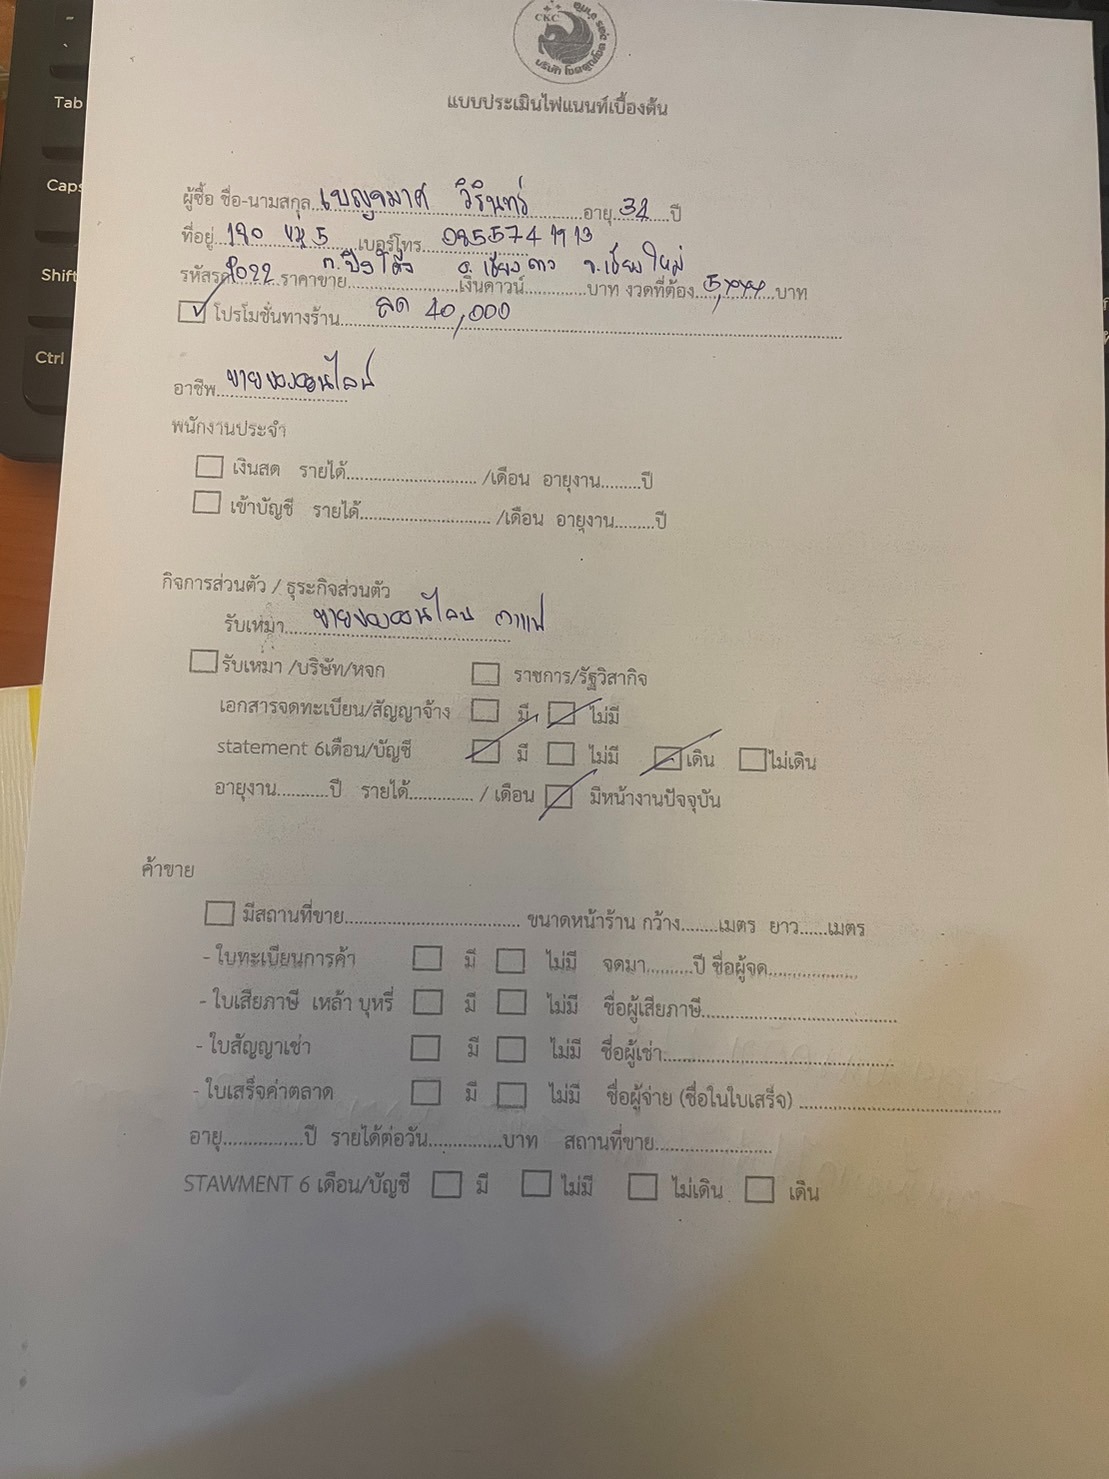 CKC
แบบประเมินไฟแนนท์เบื้องต้น
ผู้ซื้อ ชื่อ-นามสกุล เบญจมาศ วิรินทร์ อายุ 32 ปี
ที่อยู่ 180 หมู่ 5 เบอร์โทร 0955741913
ต.ปิงโค้ง อ.เชียงดาว จ.เชียงใหม่
รหัสรถ 2022 ราคาขาย..........เงินดาวน์..........บาท งวดที่ต้อง 5,xxx บาท
โปรโมชั่นทางร้าน ลด 40,000
อาชีพ ขายของออนไลน์
พนักงานประจำ
เงินสด รายได้.......... /เดือน อายุงาน.........ปี
เข้าบัญชี รายได้.......... /เดือน อายุงาน.........ปี
กิจการส่วนตัว / ธุระกิจส่วนตัว
รับเหมา ขายของออนไลน์ กาแฟ
รับเหมา /บริษัท/หจก ราชการ/รัฐวิสากิจ
เอกสารจดทะเบียน/สัญญาจ้าง มี ไม่มี
statement 6เดือน/บัญชี มี ไม่มี เดิน ไม่เดิน
อายุงาน..........ปี รายได้............. / เดือน มีหน้างานปัจจุบัน
ค้าขาย
มีสถานที่ขาย.......... ขนาดหน้าร้าน กว้าง........เมตร ยาว......เมตร
- ใบทะเบียนการค้า มี ไม่มี จดมา.........ปี ชื่อผู้จด..........
- ใบเสียภาษี เหล้า บุหรี่ มี ไม่มี ชื่อผู้เสียภาษี..........
- ใบสัญญาเช่า มี ไม่มี ชื่อผู้เช่า..........
- ใบเสร็จค่าตลาด มี ไม่มี ชื่อผู้จ่าย (ชื่อในใบเสร็จ) ..........
อายุ..........ปี รายได้ต่อวัน..........บาท สถานที่ขาย..........
STAWMENT 6 เดือน/บัญชี มี ไม่มี ไม่เดิน เดิน
Tab
Caps
Shift
Ctrl